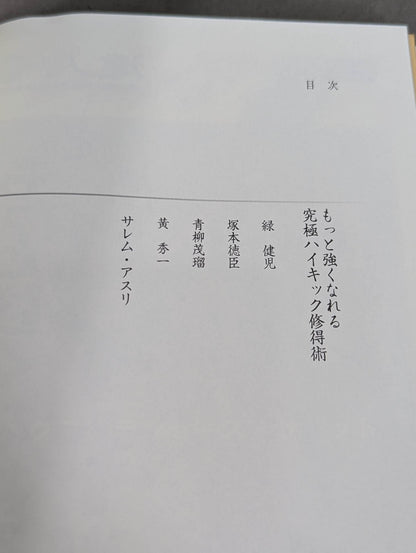 目 次
もっと強くなれる
究極ハイキック修得術
緑 健児
塚本徳臣
青柳茂瑠
黃 秀一
サレム・アスリ